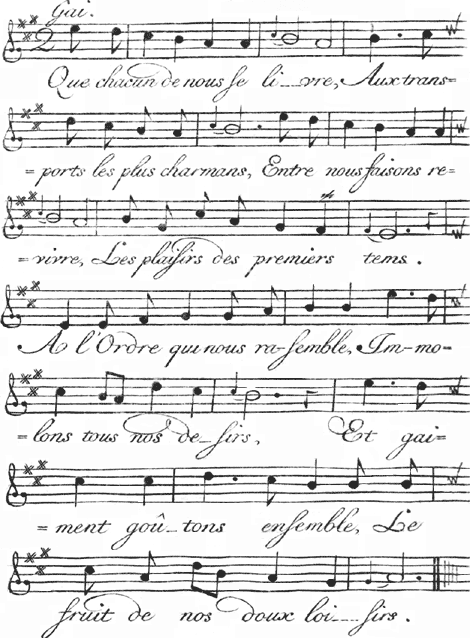 Gai.
2
Que chacun de nous se li__vre, Aux trans=
= ports les plus charmans, Entre nous faisons re=
= vivre, Les plaisirs des premiers tems.
A l'Ordre qui nous ra-semble, Im-mo=
= lons tous nos de_sirs, Et gai=
= ment goû_tons ensemble, Le
fruit de nos doux loi___sirs.